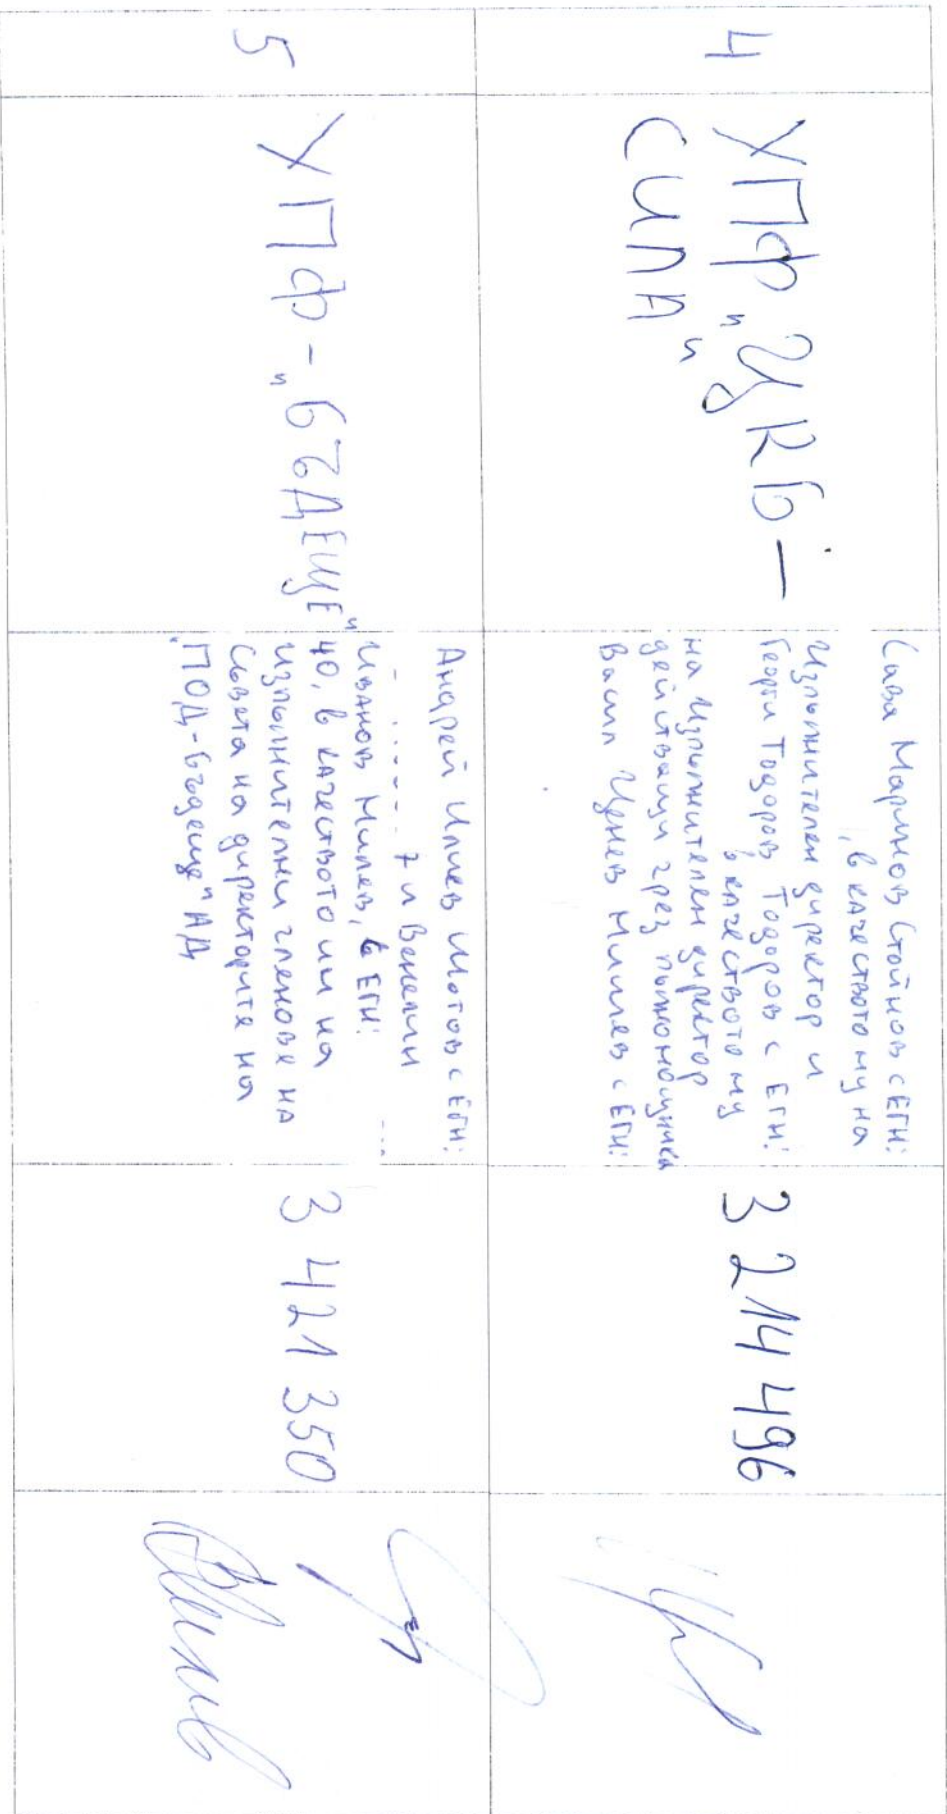 4
ХПФ „ЦКБ-
СИЛА"
Сава Маринов Стойнов с ЕГН:
, в качеството му на
Изпълнителен директор и
Георги Тодоров Тодоров с ЕГН:
, в качеството му
на Изпълнителен директор
действащи чрез пълномощника
Васил Ценев Милчев с ЕГН:
3 214 496
5
ХПФ - „БЪДЕЩЕ"
Андрей Илиев Шотов с ЕГН:
7 и Венелин
Иванов Милев, с ЕГН:
40, в качеството им на
изпълнителни членове на
Съвета на директорите на
"ПОД-Бъдеще" АД
3 421 350